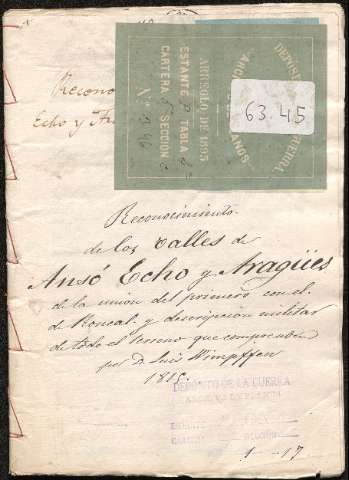 Recono
Echo y Ar
DEPÓSI
GUERRA
ARC
ANOS
ARREGLO DE 1895
ESTANTE TABLA
CARTERA SECCIÓN
Nº
63.45
Reconocimiento
de los valles de
Ansó Echo y Aragües
de la union del primero con el
de Roncal y descripcion militar
de todo el terreno que comprenden
por D. Luis Wimpffen
DEPÓSITO DE LA GUERRA
1 - 17